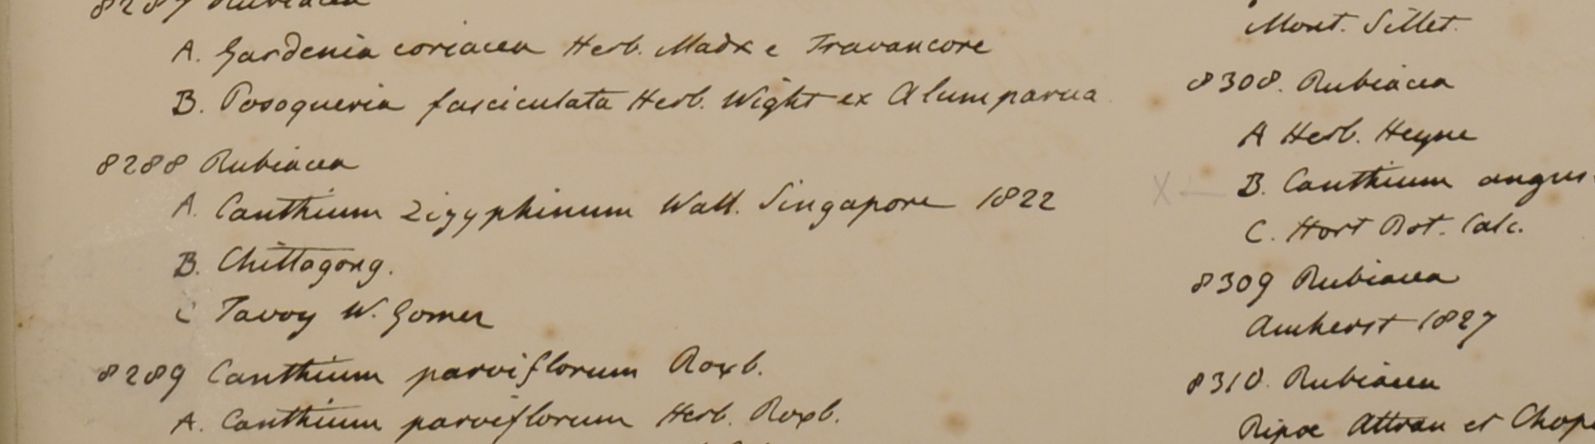 8287 Rubiacea
A. Gardenia coriacea Herb. Madx e Travancore
B. Posoqueria fasciculata Herb. Wight ex Alumparva
8288 Rubiacea
A. Canthium Zizyphinum Wall. Singapore 1822
B. Chittagong.
C Tavoy W. Gomez
8289 Canthium parviflorum Roxb.
A. Canthium parviflorum Herb. Roxb.
Mont. Sillet.
8308. Rubiacea
A Herb. Heyne
X — B. Canthium angus
C. Hort Bot. Calc.
8309 Rubiacea
Amherst 1827
8310. Rubiacea
Ripae Attran et Chap